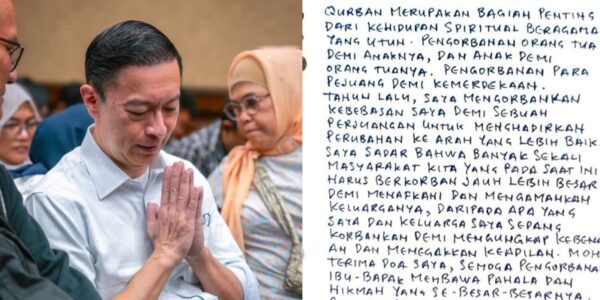 QURBAN MERUPAKAN BAGIAN PENTING
DARI KEHIDUPAN SPIRITUAL BERAGAMA
YANG UTUH. PENGORBANAN ORANG TUA
DEMI ANAKNYA, DAN ANAK DEMI
ORANG TUANYA. PENGORBANAN PARA
PEJUANG DEMI KEMERDEKAAN.
TAHUN LALU, SAYA MENGORBANKAN
KEBEBASAN SAYA DEMI SEBUAH
PERJUANGAN UNTUK MENGHADIRKAN
PERUBAHAN KE ARAH YANG LEBIH BAIK.
SAYA SADAR BAHWA BANYAK SEKALI
MASYARAKAT KITA YANG PADA SAAT INI
HARUS BERKORBAN JAUH LEBIH BESAR
DEMI MENAFKAHI DAN MENGAMANKAN
KELUARGANYA, DARIPADA APA YANG
SAYA DAN KELUARGA SAYA SEDANG
KORBANKAN DEMI MENGUNGKAP KEBENA
AN DAN MENEGAKKAN KEADILAN. MOH
TERIMA DOA SAYA, SEMOGA PENGORBANA
IBU-BAPAK MEMBAWA PAHALA DAN
HIKMAH YANG SE-BESAR-BESARNYA.